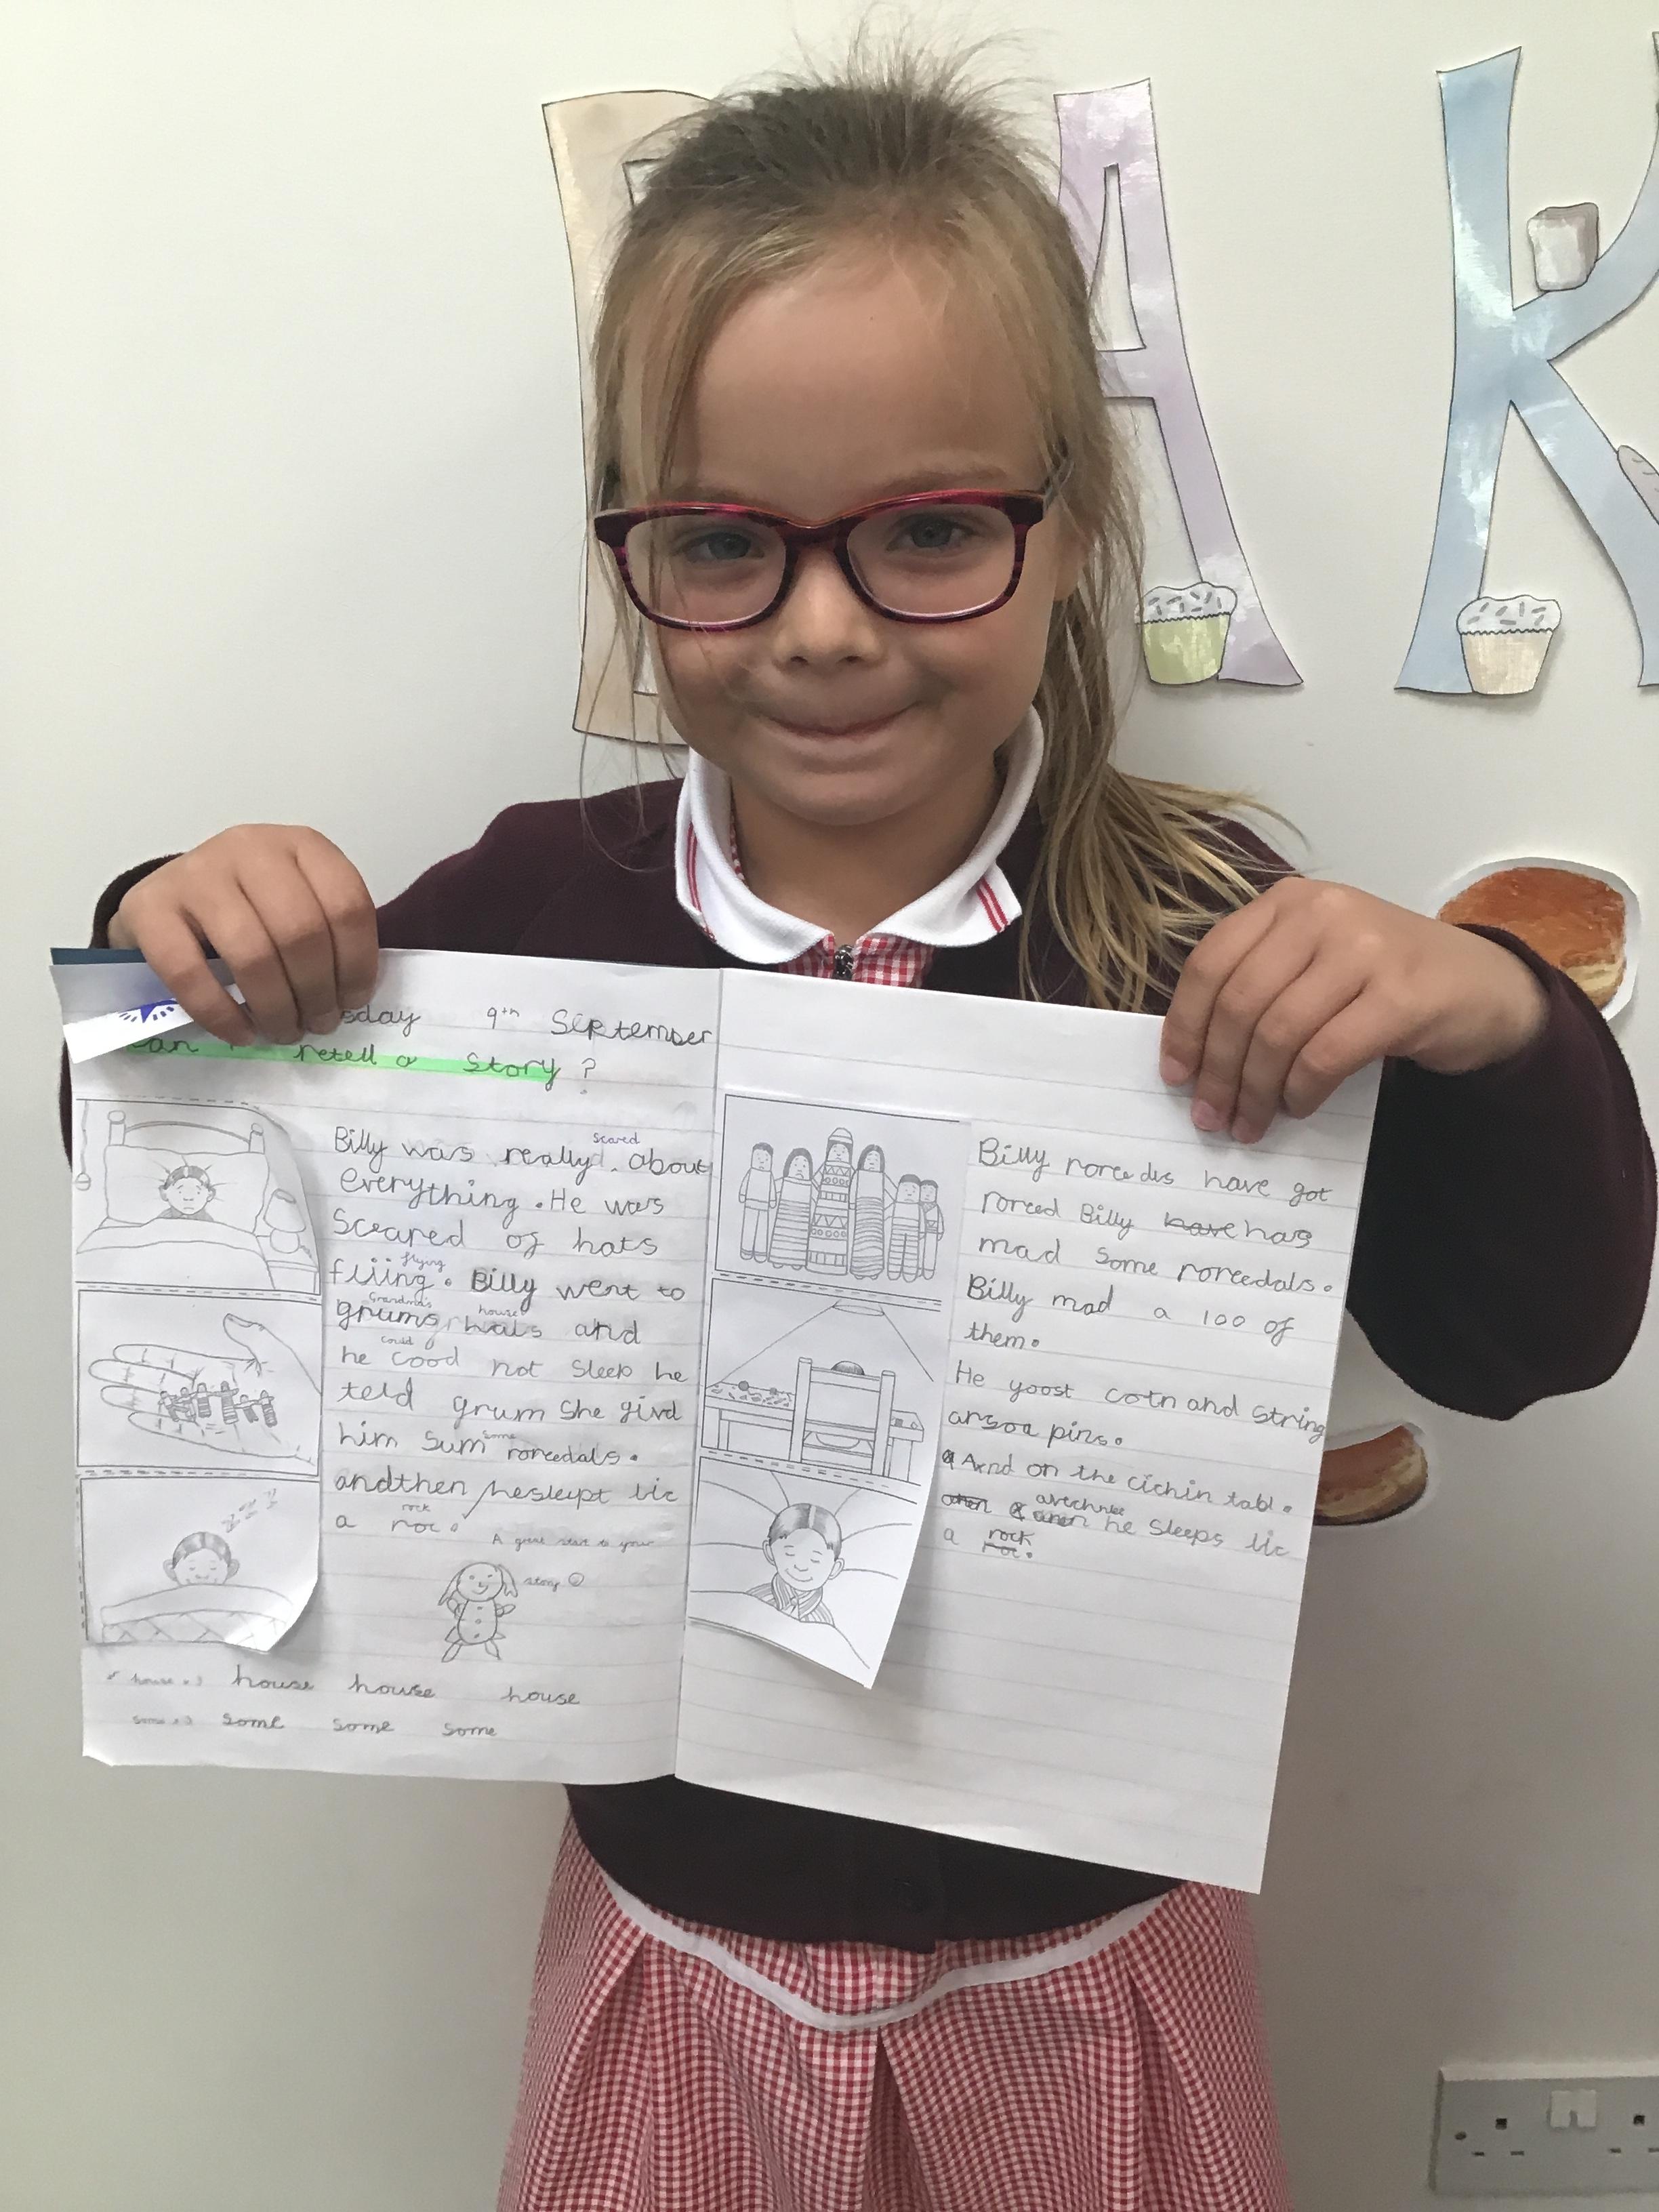 BAK
sday 9th September
can I retell a story?
scared
Billy was really. about
everything. He was
Sceared of hats
flying
fliing. Billy went to
Grandma's house
grums hais and
could
he cood not sleep he
teld grum She givd
some
him sum roreedals.
andthen heslept lic
rock
a roc.
A great start to your
story
house x3 house house house
some x3 some some some
Billy roreedls have got
roreed Billy have has
mad some roreedals.
Billy mad a 100 of
them.
He yoost cotn and string
arsoa pins.
And on the cichin tabl.
he sleeps lic
rock
a roc.